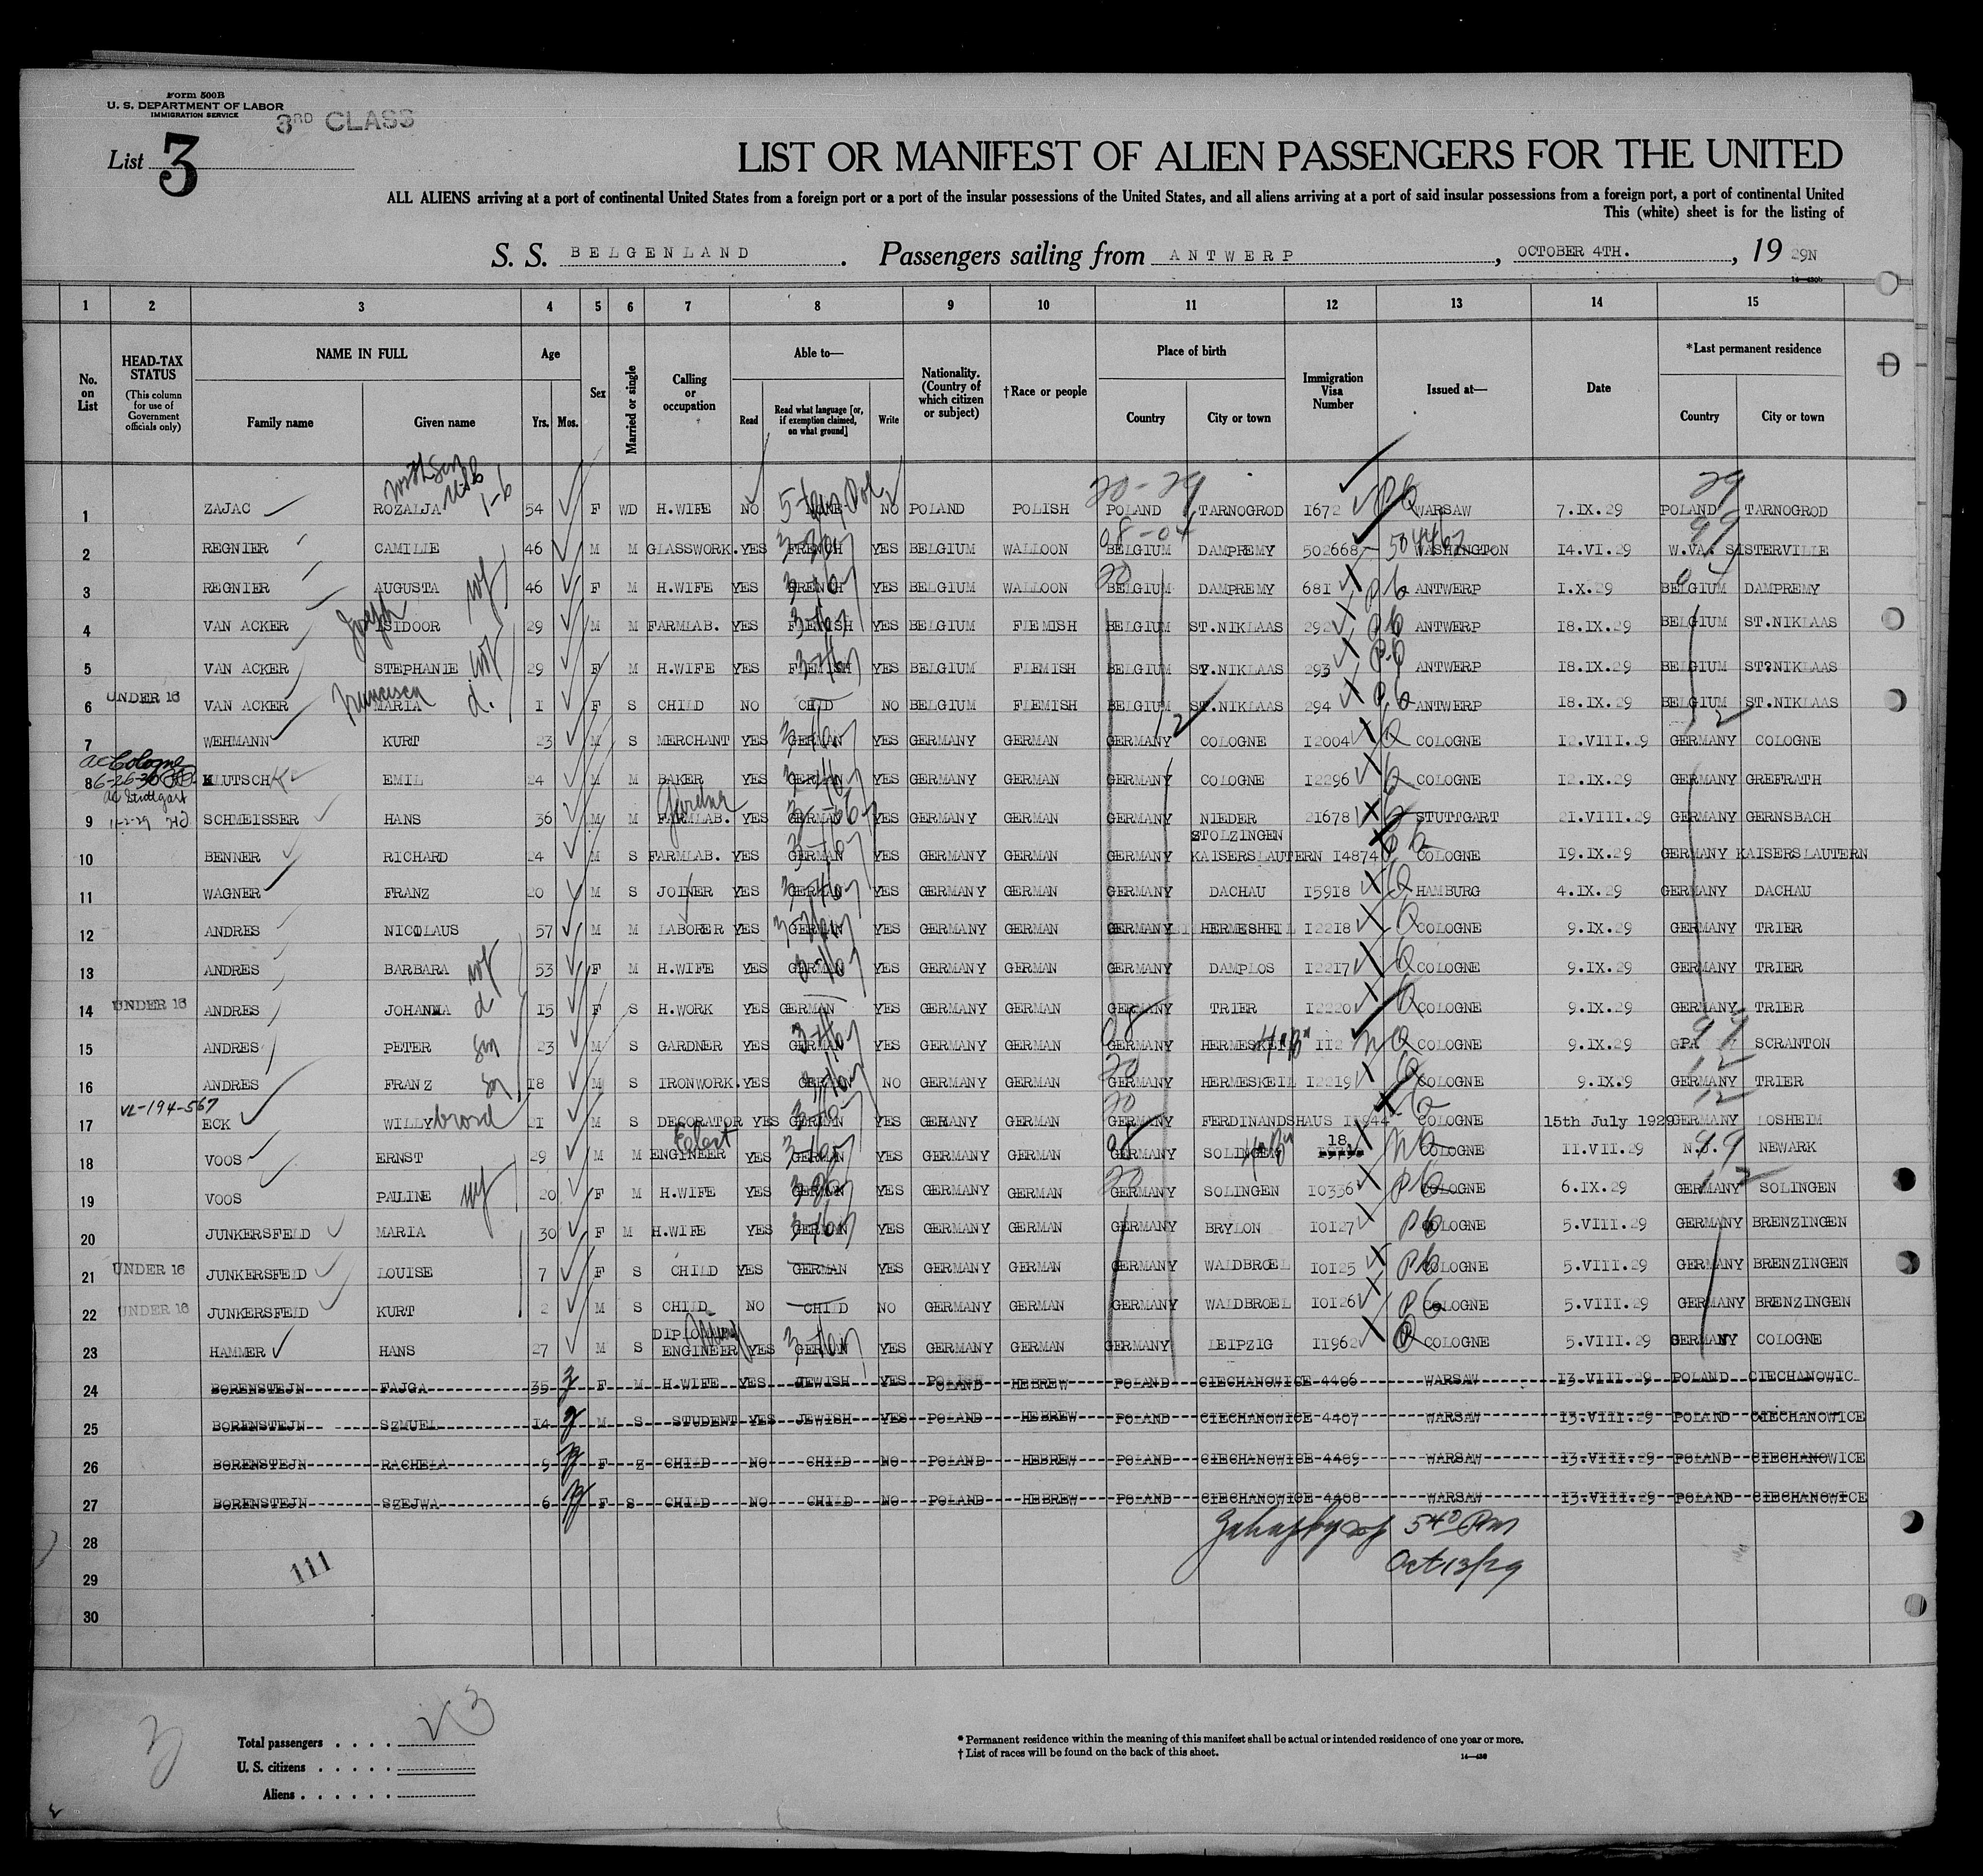 Form 500B
U. S. DEPARTMENT OF LABOR
IMMIGRATION SERVICE
3RD CLASS
List 3
LIST OR MANIFEST OF ALIEN PASSENGERS FOR THE UNITED
ALL ALIENS arriving at a port of continental United States from a foreign port or a port of the insular possessions of the United States, and all aliens arriving at a port of said insular possessions from a foreign port, a port of continental United
This (white) sheet is for the listing of
S. S. BELGENLAND. Passengers sailing from ANTWERP, OCTOBER 4TH., 19 29N
1 2 3 4 5 6 7 8 9 10 11 12 13 14 15
No. on List
HEAD-TAX STATUS
(This column for use of Government officials only)
NAME IN FULL
Family name Given name
Age
Yrs. Mos.
Sex
Married or single
Calling or occupation
Able to—
Read
Read what language [or, if exemption claimed, on what ground]
Write
Nationality. (Country of which citizen or subject)
†Race or people
Place of birth
Country City or town
Immigration Visa Number
Issued at—
Date
*Last permanent residence
Country City or town
1 ZAJAC ROZALJA 1-6 54 F WD H.WIFE NO NO POLAND POLISH 20-29 POLAND TARNOGROD 1672 WARSAW 7.IX.29 29 POLAND TARNOGROD
2 REGNIER CAMILLE 46 M M GLASSWORK. YES FRENCH YES BELGIUM WALLOON BELGIUM DAMPREMY 502668 WASHINGTON 14.VI.29 99 W.VA. SISTERVILLE
3 REGNIER AUGUSTA wf 46 F M H.WIFE YES FRENCH YES BELGIUM WALLOON 20 BELGIUM DAMPREMY 681 ANTWERP 1.X.29 BELGIUM DAMPREMY
4 VAN ACKER Joseph ISIDOOR 29 M M FARMLAB. YES FLEMISH YES BELGIUM FLEMISH BELGIUM ST.NIKLAAS 292 ANTWERP 18.IX.29 BELGIUM ST.NIKLAAS
5 VAN ACKER STEPHANIE wf 29 F M H.WIFE YES FLEMISH YES BELGIUM FLEMISH BELGIUM ST.NIKLAAS 293 ANTWERP 18.IX.29 BELGIUM ST?NIKLAAS
UNDER 16
6 VAN ACKER MARIA d. 1 F S CHILD NO CHILD NO BELGIUM FLEMISH BELGIUM ST.NIKLAAS 294 ANTWERP 18.IX.29 BELGIUM ST.NIKLAAS
7 WEHMANN KURT 23 M S MERCHANT YES GERMAN YES GERMANY GERMAN GERMANY COLOGNE 12004 COLOGNE 12.VIII.29 GERMANY COLOGNE
Cologne
8 6-26-30 KLUTSCH EMIL 24 M M BAKER YES GERMAN YES GERMANY GERMAN GERMANY COLOGNE 12296 COLOGNE 12.IX.29 GERMANY GREFRATH
Stuttgart
9 11-2-29 SCHMEISSER HANS 36 M M FARMLAB. YES GERMAN YES GERMANY GERMAN GERMANY NIEDER STOLZINGEN 21678 STUTTGART 21.VIII.29 GERMANY GERNSBACH
10 BENNER RICHARD 24 M S FARMLAB. YES GERMAN YES GERMANY GERMAN GERMANY KAISERSLAUTERN 14874 COLOGNE 19.IX.29 GERMANY KAISERSLAUTERN
11 WAGNER FRANZ 20 M S JOINER YES GERMAN YES GERMANY GERMAN GERMANY DACHAU 15918 HAMBURG 4.IX.29 GERMANY DACHAU
12 ANDRES NICOLAUS 57 M M LABORER YES GERMAN YES GERMANY GERMAN GERMANY HERMESHEIL 12218 COLOGNE 9.IX.29 GERMANY TRIER
13 ANDRES BARBARA wf 53 F M H.WIFE YES GERMAN YES GERMANY GERMAN GERMANY DAMPLOS 12217 COLOGNE 9.IX.29 GERMANY TRIER
UNDER 16
14 ANDRES JOHANNA d 15 F S H.WORK YES GERMAN YES GERMANY GERMAN GERMANY TRIER 12220 COLOGNE 9.IX.29 GERMANY TRIER
15 ANDRES PETER son 23 M S GARDNER YES GERMAN YES GERMANY GERMAN GERMANY HERMESKEIL 112 COLOGNE 9.IX.29 PA SCRANTON
16 ANDRES FRANZ 18 M S IRONWORK. YES GERMAN NO GERMANY GERMAN GERMANY HERMESKEIL 12219 COLOGNE 9.IX.9 GERMANY TRIER
VL-194-567
17 ECK WILLY 21 M S DECORATOR YES GERMAN YES GERMANY GERMAN GERMANY FERDINANDSHAUS 11944 COLOGNE 15th July 1929 GERMANY LOSHEIM
18 VOOS ERNST 29 M M ENGINEER YES GERMAN YES GERMANY GERMAN GERMANY SOLINGEN 18 COLOGNE 11.VII.29 N.J. NEWARK
19 VOOS PAULINE wf 20 F M H.WIFE YES GERMAN YES GERMANY GERMAN GERMANY SOLINGEN 10336 COLOGNE 6.IX.29 GERMANY SOLINGEN
20 JUNKERSFELD MARIA 30 F M H.WIFE YES GERMAN YES GERMANY GERMAN GERMANY BRYLON 10127 COLOGNE 5.VIII.29 GERMANY BRENZINGEN
UNDER 16
21 JUNKERSFELD LOUISE 7 F S CHILD YES GERMAN YES GERMANY GERMAN GERMANY WALDBROEL 10125 COLOGNE 5.VIII.29 GERMANY BRENZINGEN
UNDER 16
22 JUNKERSFELD KURT 2 M S CHILD NO CHILD NO GERMANY GERMAN GERMANY WALDBROEL 10126 COLOGNE 5.VIII.29 GERMANY BRENZINGEN
23 HAMMER HANS 27 M S ENGINEER YES GERMAN YES GERMANY GERMAN GERMANY LEIPZIG 11962 COLOGNE 5.VIII.29 GERMANY COLOGNE
24 BORENSTEJN FAJGA 35 F M H.WIFE YES JEWISH YES POLAND HEBREW POLAND CIECHANOWICE 4406 WARSAW 13.VIII.29 POLAND CIECHANOWIC
25 BORENSTEJN SZMUEL 14 M S STUDENT YES JEWISH YES POLAND HEBREW POLAND CIECHANOWICE 4407 WARSAW 13.VIII.29 POLAND CIECHANOWICE
26 BORENSTEJN RACHELA 9 F S CHILD NO CHILD NO POLAND HEBREW POLAND CIECHANOWICE 4409 WARSAW 13.VIII.29 POLAND CIECHANOWICE
27 BORENSTEJN SZEJWA 6 F S CHILD NO CHILD NO POLAND HEBREW POLAND CIECHANOWICE 4408 WARSAW 13.VIII.29 POLAND CIECHANOWICE
28 540 Pm
29 111 Oct 13/29
30
Total passengers . . . . 23
U. S. citizens . . . . .
Aliens . . . . . .
* Permanent residence within the meaning of this manifest shall be actual or intended residence of one year or more.
† List of races will be found on the back of this sheet.
14—430